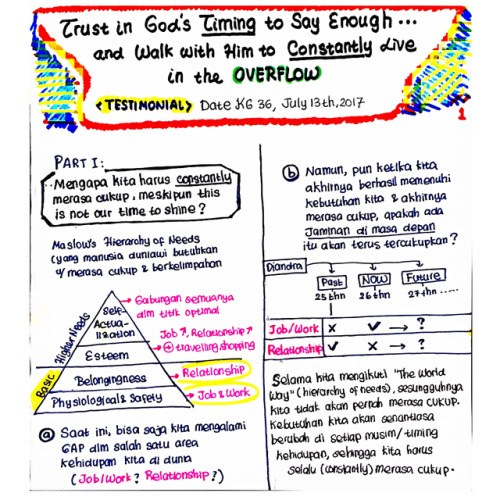 Trust in God's Timing to Say Enough...
and Walk with Him to Constantly Live
in the OVERFLOW
<TESTIMONIAL> Date KG 36, July 13th, 2017
1
PART I:
Mengapa kita harus constantly
merasa cukup, meskipun this
is not our time to shine?
Maslow's Hierarchy of Needs
(yang manusia duniawi butuhkan
u/ merasa cukup & berkelimpahan
Higher Needs
Basic
Self-
Actua-
lization
Esteem
Belongingness
Physiological & Safety
Gabungan semuanya
dlm titik optimal
Job↗, Relationship↗
⊕ travelling, shopping
Relationship
Job & Work
ⓐ Saat ini, bisa saja kita mengalami
GAP dlm salah satu area
kehidupan kita di dunia
(Job/Work? Relationship?)
ⓑ Namun, pun ketika kita
akhirnya berhasil memenuhi
kebutuhan kita & akhirnya
merasa cukup, apakah ada
Jaminan di masa depan
itu akan terus tercukupkan?
Diandra
Past Now Future
25 thn 26 thn 27 thn .....
Job/Work X ✓ → ?
Relationship ✓ X → ?
Selama kita mengikuti "The World
Way" (hierarchy of needs), sesungguhnya
kita tidak akan pernah merasa CUKUP.
Kebutuhan kita akan senantiasa
berubah di setiap musim/timing
kehidupan, sehingga kita harus
selalu (constantly) merasa cukup.